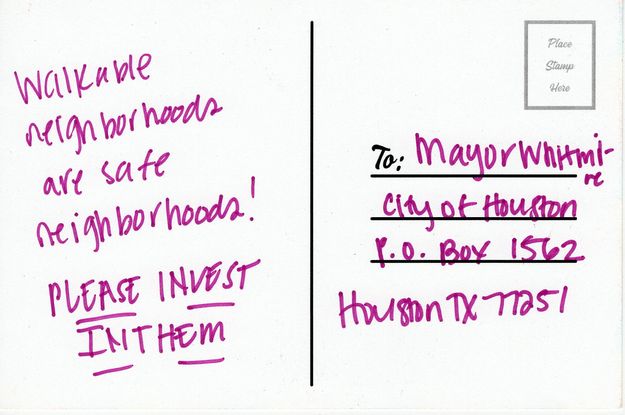 Walkable
neighborhoods
are safe
neighborhoods!
PLEASE INVEST
IN THEM
Place
Stamp
Here
To: Mayor Whitmi-
re
City of Houston
P.O. Box 1562
Houston TX 77251